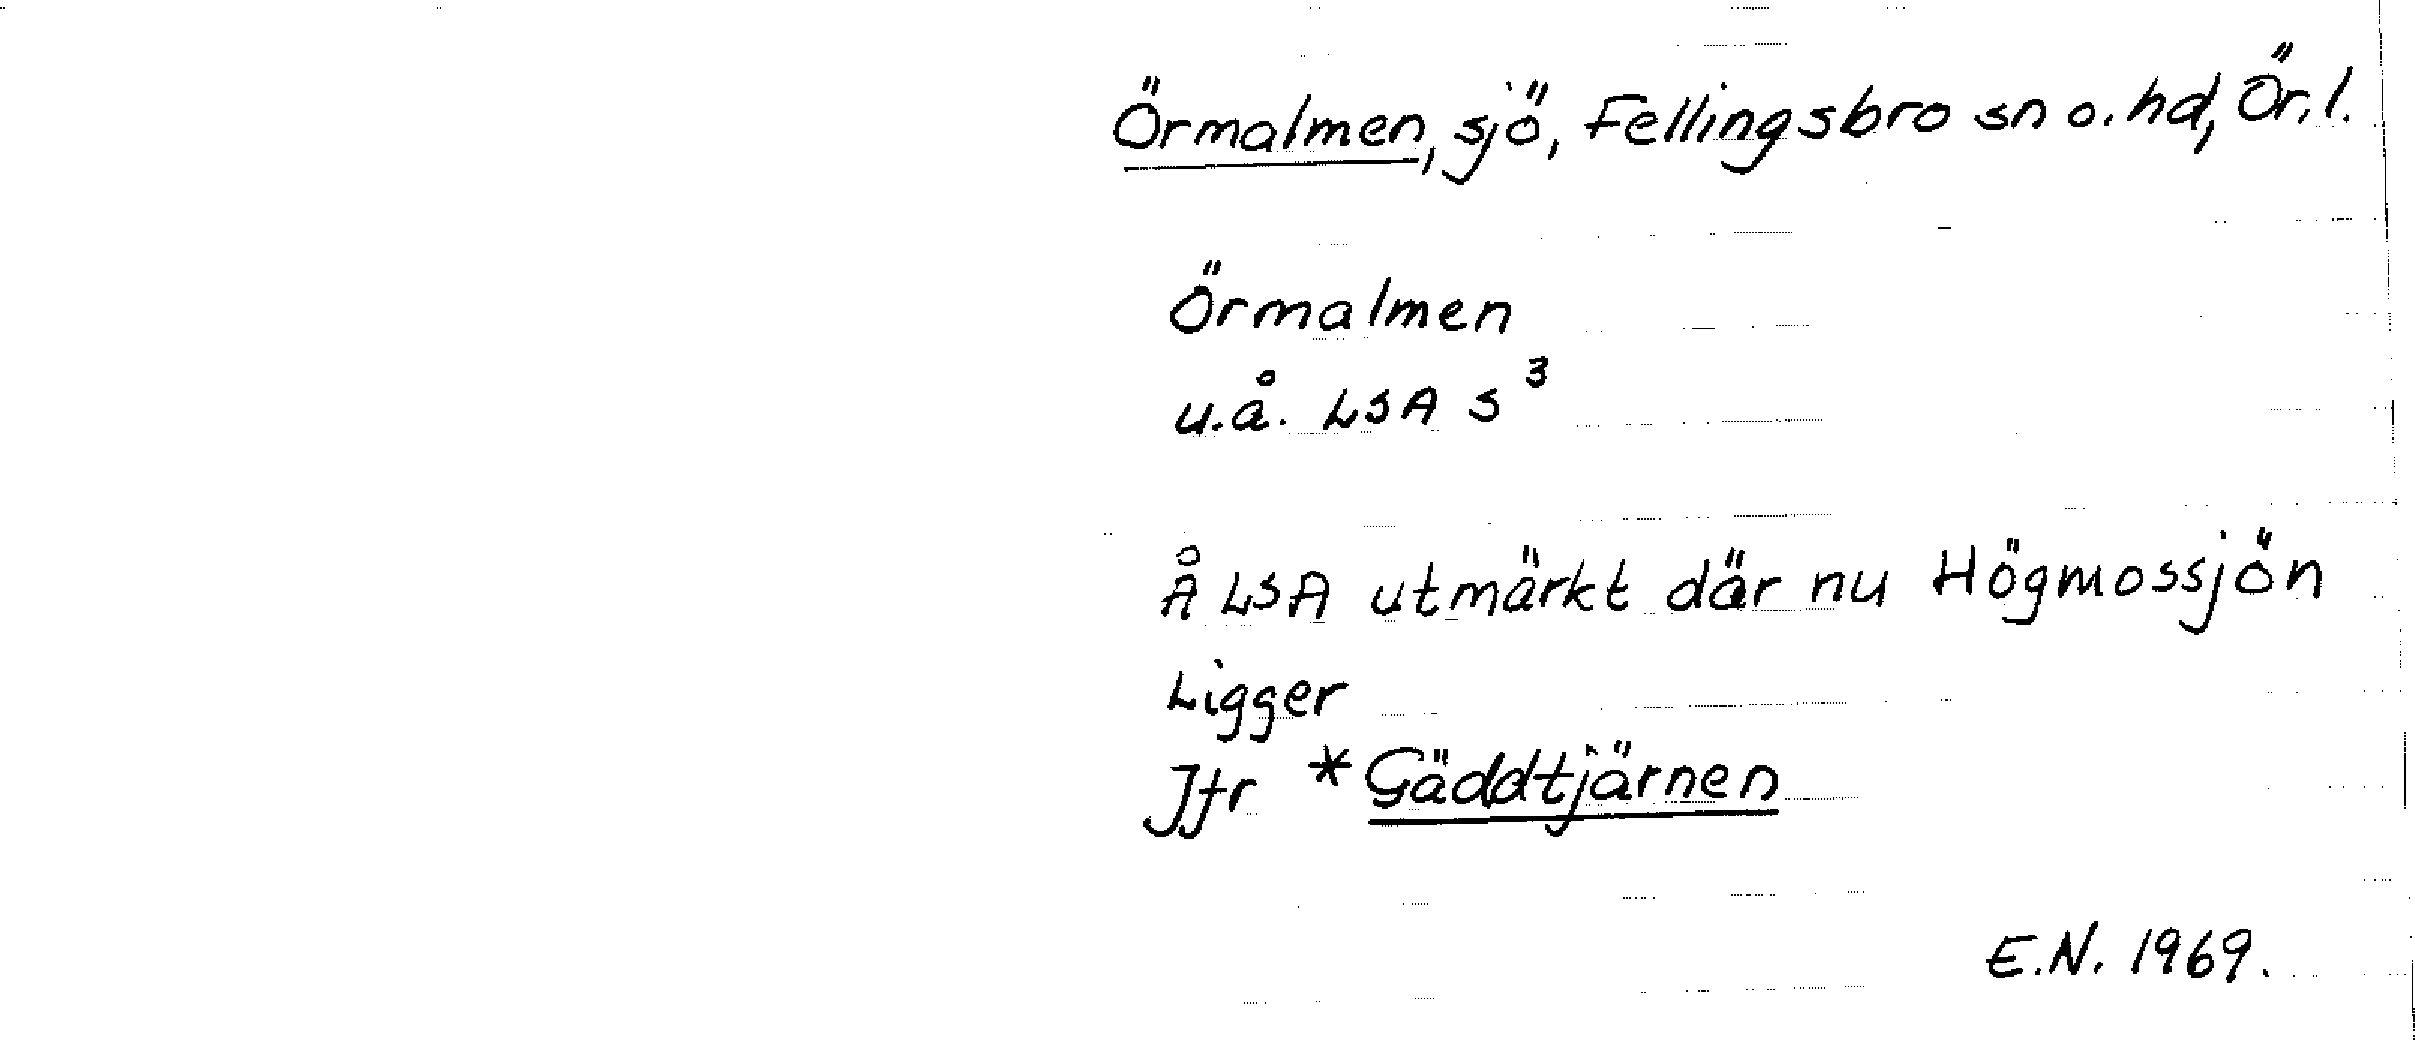 Örmalmen, sjö, Fellingsbro sn o. hd, Ör. l.
Örmalmen
u.å. LSA S³
Å LSA utmärkt där nu Högmossjön
Ligger
Jfr *Gäddtjärnen
E.N. 1969.